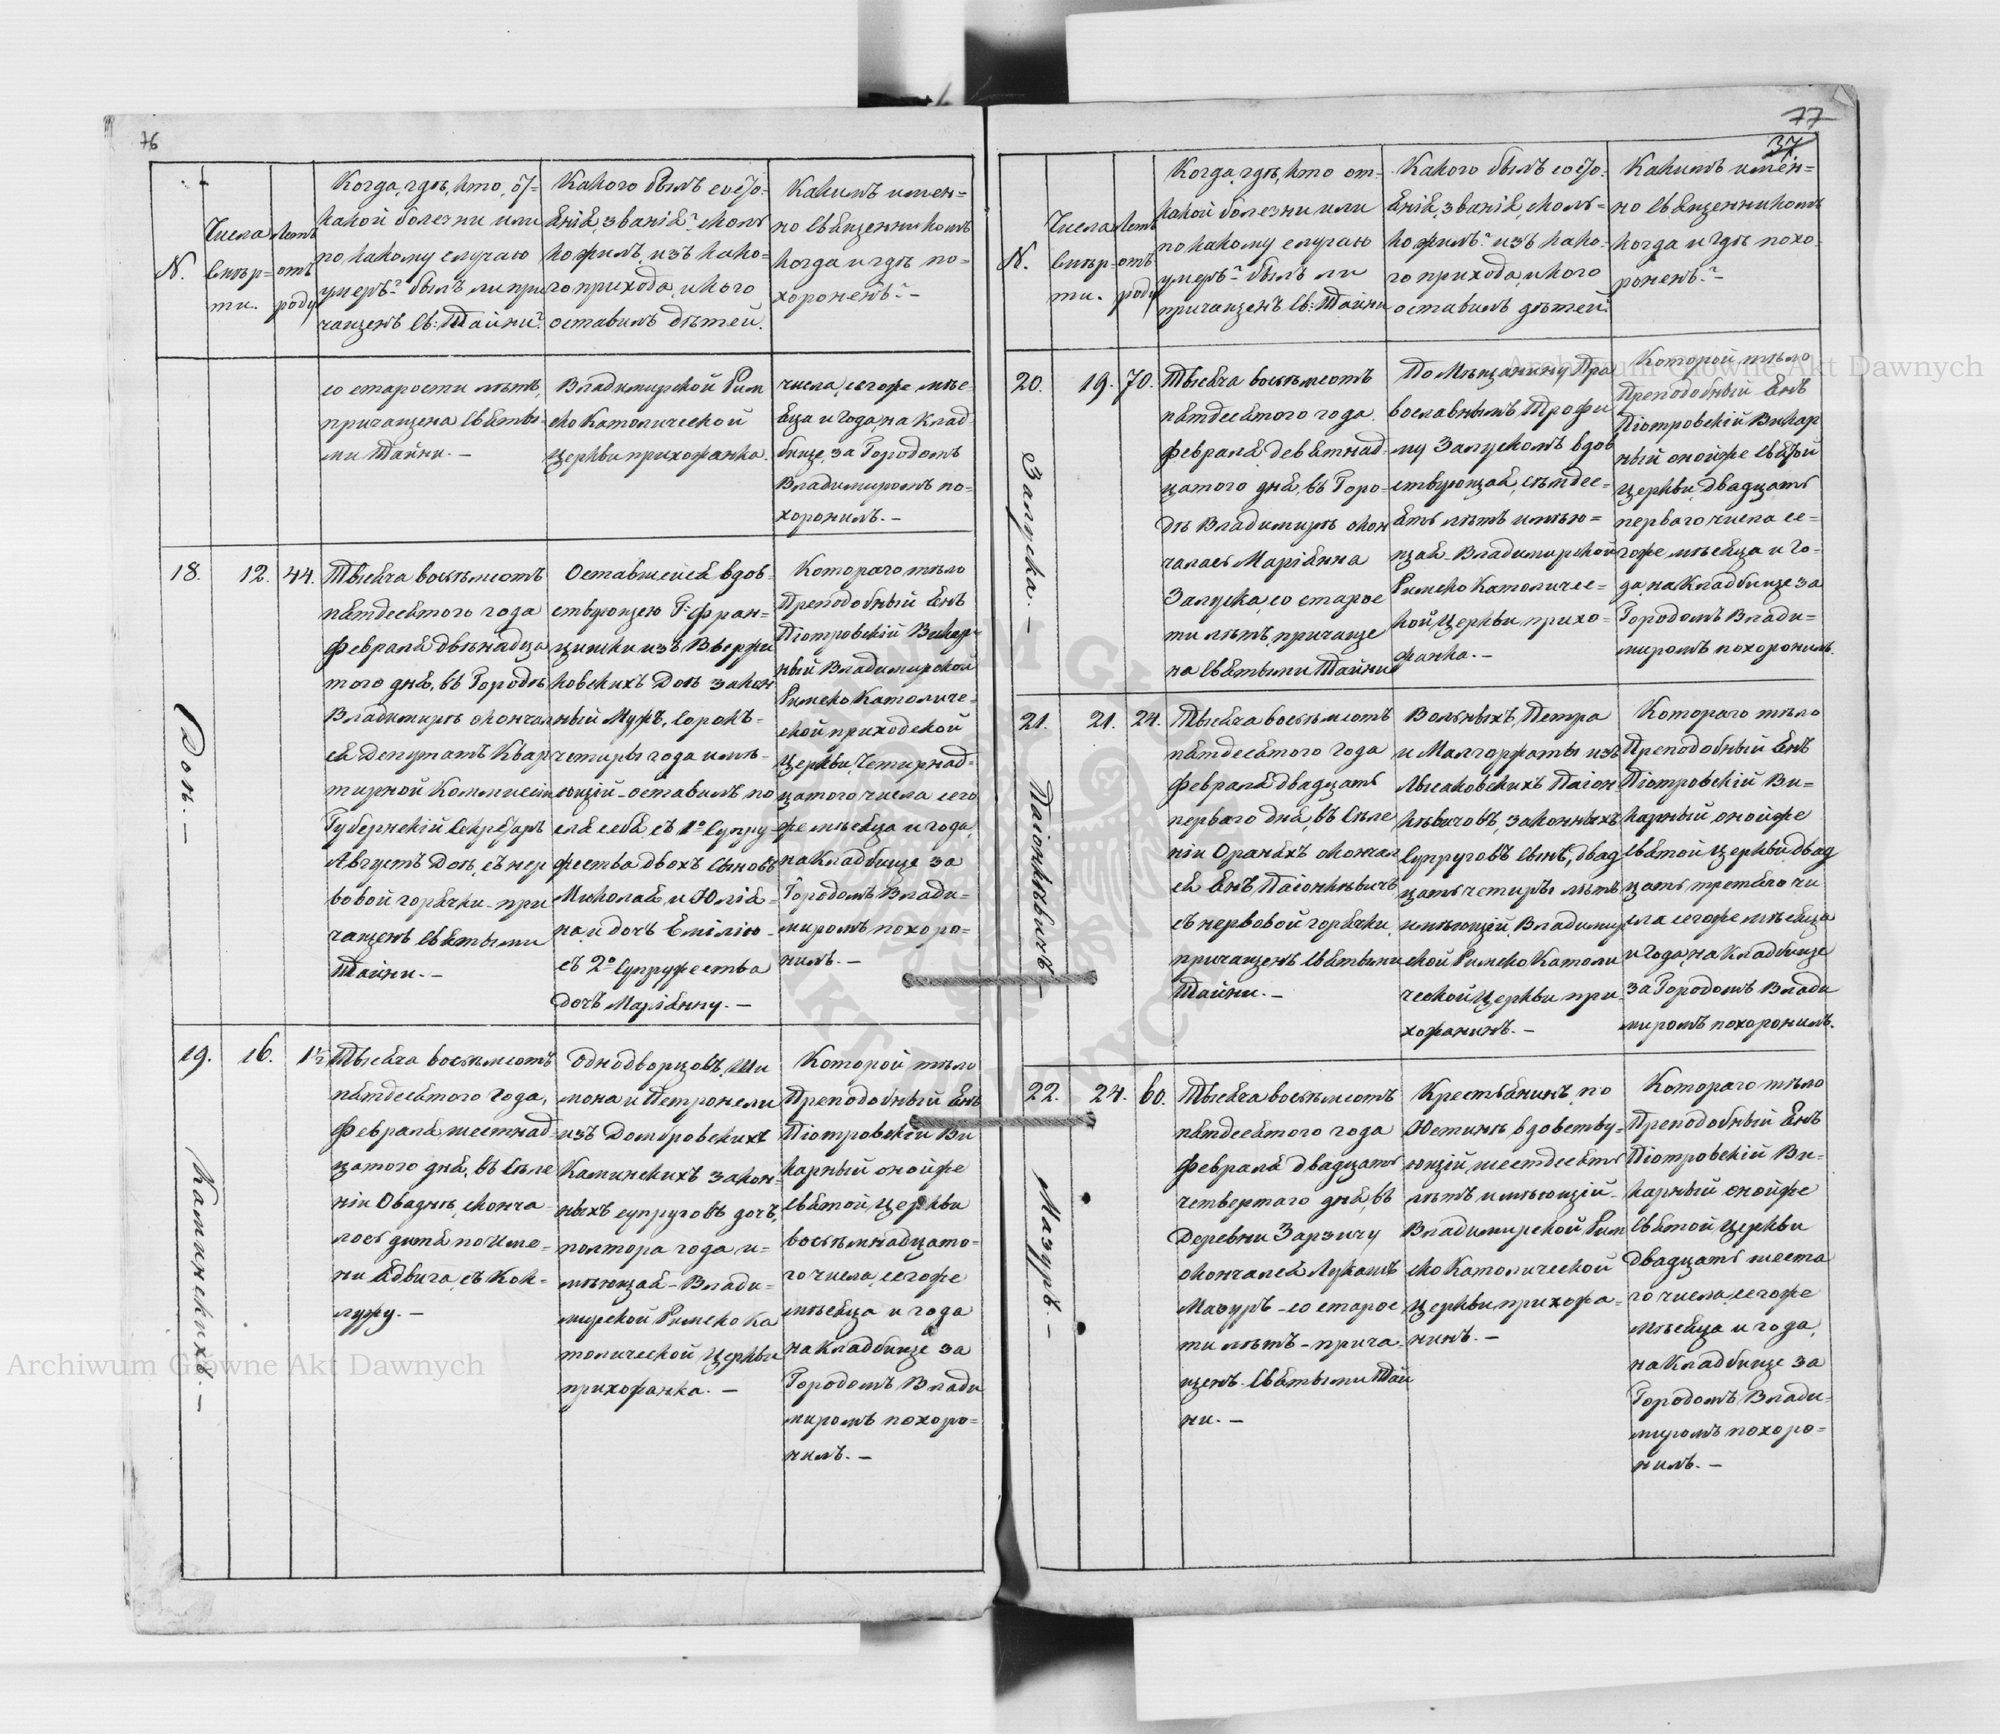 76
N.
Числа
Смѣр-
ти.
Летъ
отъ
роду
Когда, гдѣ, кто, от
какой болезни или
по какому случаю
умеръ? былъ ли при
чащенъ Св: Тайни?
Какого былъ состо-
янія, званія? сколь
ко жилъ, изъ како-
го прихода, и кого
оставилъ дѣтей.
Какимъ имен-
но Священникомъ
когда и гдѣ по-
хороненъ? –
со старости лѣтъ,
причащена Святы-
ми Тайни. –
Владимирской Рим
ско Католической
Церкви прихожанка.
числа, сегоже мѣс-
яца и года, на Клад-
бище, за Городомъ
Владимиромъ по-
хоронилъ. –
18.
Доп. –
12.
44.
Тысяча восѣмсотъ
пятдесятого года
Февраля двѣнадца
того дня, въ Городѣ
Владимирѣ скончал
ся Депутатъ Квар
тирной Коммисіи
Губернскій Секретарь
Августъ Доп, съ нер
вовой горячки – при
чащенъ Святыми
Тайни. –
Оставшейся вдов-
ствующею Г: Фран-
цишки изъ Ввержи
ковскихъ Доп закон
ный Мужъ, сорокъ-
четиры года имѣ-
ющій – оставилъ по
сля себя, съ 1º Супру
жества двохъ Сыновъ
Миколая, и Юлія-
на, и дочъ Емілію –
съ 2º Супружества
дочъ Маріянну. –
Котораго тѣло
Преподобный Янъ
Піотровскій Викар-
ный Владимирской
Римско Католиче-
ской приходской
Церкви, Четирнад-
цатого числа сего
же мѣсяца и года,
на Кладбище за
Городомъ Влади-
миромъ похоро-
нилъ. –
19.
Каминскихъ. –
16.
1½
Тысяча восѣмсотъ
пятдесятого года,
Февраля шестнад
цатого дня, въ Селе
ніи Овадне, сконча
лось дитя по Име-
ни Ядвига, съ Кок-
лужу. –
Однодворцовъ, Ши
мона и Петронели
изъ Домбровскихъ
Каминскихъ закон-
ныхъ супруговъ дочъ,
полтора года и-
мѣющая – Влади-
мирской Римско Ка
толической Церкви
прихожанка. –
Которой тѣло
Преподобный Янъ
Піотровскій Ви
карный онойже
Святой Церкви
восѣмнадцато-
го числа, сегоже
мѣсяца и года
на Кладбище за
Городомъ Влади
миромъ похоро-
нилъ. –
77
37
N.
Числа
Смѣр-
ти.
Летъ
отъ
роду
Когда, гдѣ, кто от-
какой болезни или
по какому случаю
умеръ? былъ ли
причащенъ Св: Тайни
Какого былъ состо-
янія, званія, сколь-
ко жилъ? изъ како-
го прихода, и кого
оставилъ дѣтей?
Какимъ имен-
но Священникомъ
когда и гдѣ похо-
роненъ? –
20.
Залуска. –
19.
70.
Тысяча восѣмсотъ
пятдесятого года
Февраля девятнад-
цатого дня, въ Горо-
дѣ Владимирѣ скон
чалась Маріянна
Залуска, со старос
ти лѣтъ, причаще
на Святыми Тайни
По Мѣщанину Пра
вославнымъ, Трофи
му Залускомъ вдов
ствующая, сѣмдес-
ятъ лѣтъ имѣю-
щая – Владимирской
Римско Католичес-
кой Церкви прихо-
жанка. –
Которой тѣло
Преподобный Янъ
Піотровскій Викар
ный онойже Святой
Церкви, двадцать
первого числа се-
гоже мѣсяца и го-
да, на Кладбище за
Городомъ Влади-
миромъ похоронилъ.
21.
Паіонкѣвичъ –
21.
24.
Тысяча восѣмсотъ
пятдесятого года
Февраля двадцать
первого дня, въ Селе
ніи Оранахъ скончал
ся Янъ Паіонкѣвичъ
съ нервовой горячки,
причащенъ Святыми
Тайни. –
Вольныхъ, Петра
и Малгоржаты изъ
Лысаковскихъ Паіон
кѣвичовъ, законныхъ
Супруговъ сынъ, двад
цать четиры лѣтъ
имѣющій, Владимир
ской Римско Католи
ческой Церкви при-
хожанинъ. –
Котораго тѣло
Преподобный Янъ
Піотровскій Ви-
карный онойже
Святой Церкви, двад
цать третяго чи
сла сегоже мѣсяца
и года, на Кладбище
за Городомъ Влади
миромъ похоронилъ.
22.
Мазуръ. –
24.
60.
Тысяча восѣмсотъ
пятдесятого года
Февраля двадцать
четвертого дня, въ
Деревни Заричу
скончался Лукашъ
Мазуръ – со старос
ти лѣтъ – прича-
щенъ Святыми Тай
ни. –
Крестьянинъ, по
Юстинѣ вдовству-
ющій, шестдесятъ
лѣтъ имѣющій –
Владимирской Рим
ско Католической
Церкви, прихожа-
нинъ. –
Котораго тѣло
Преподобный Янъ
Піотровскій Ви-
карный онойже
Святой Церкви
двадцать шеста
го числа, сегоже
мѣсяца и года,
на Кладбище за
Городомъ Влади-
миромъ похоро-
нилъ. –
Archiwum Główne Akt Dawnych
Archiwum Główne Akt Dawnych